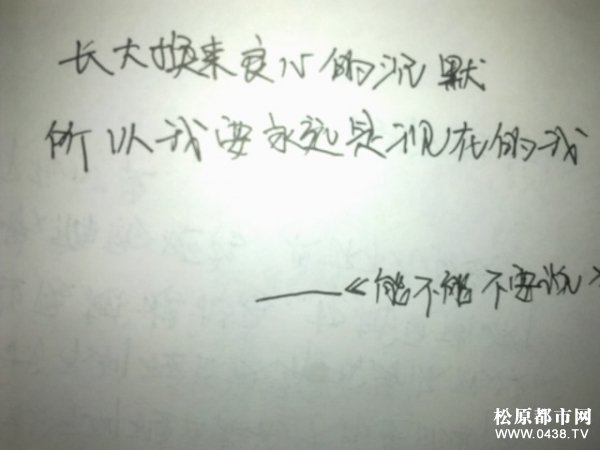 长大换来良心的沉默
所以我要永远是现在的我
——《能不能不要说》
松原都市网
WWW.0438.TV